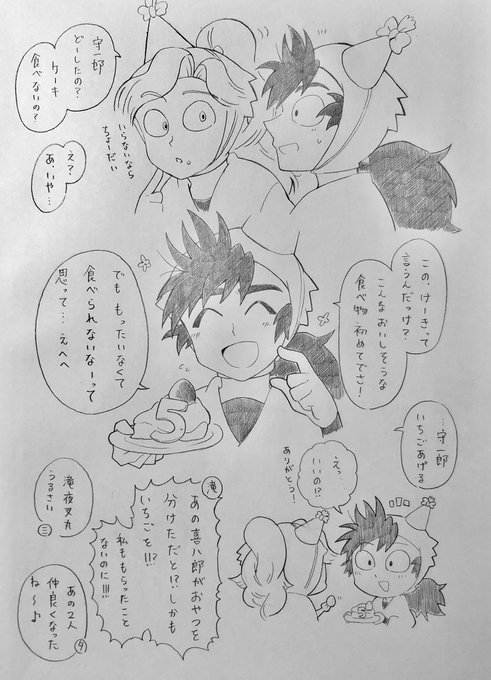 守一郎
どーしたの?
ケーキ
食べないの?
いらないなら
ちょーだい
え?
あ、いや…
この、けーきって
言うんだっけ?
こんなおいしそうな
食べ物初めてでさ!
でももったいなくて
食べられないなーって
思って…えへへ
5
…守一郎
いちごあげる
えっ
いいの!?
ありがとう!
滝
あの喜八郎がおやつを
分けただと!?しかも
いちごを!!?
私ももらったこと
ないのに!!!
滝夜叉丸
うるさい
三
あの2人
仲良くなった
ね〜♪
タ